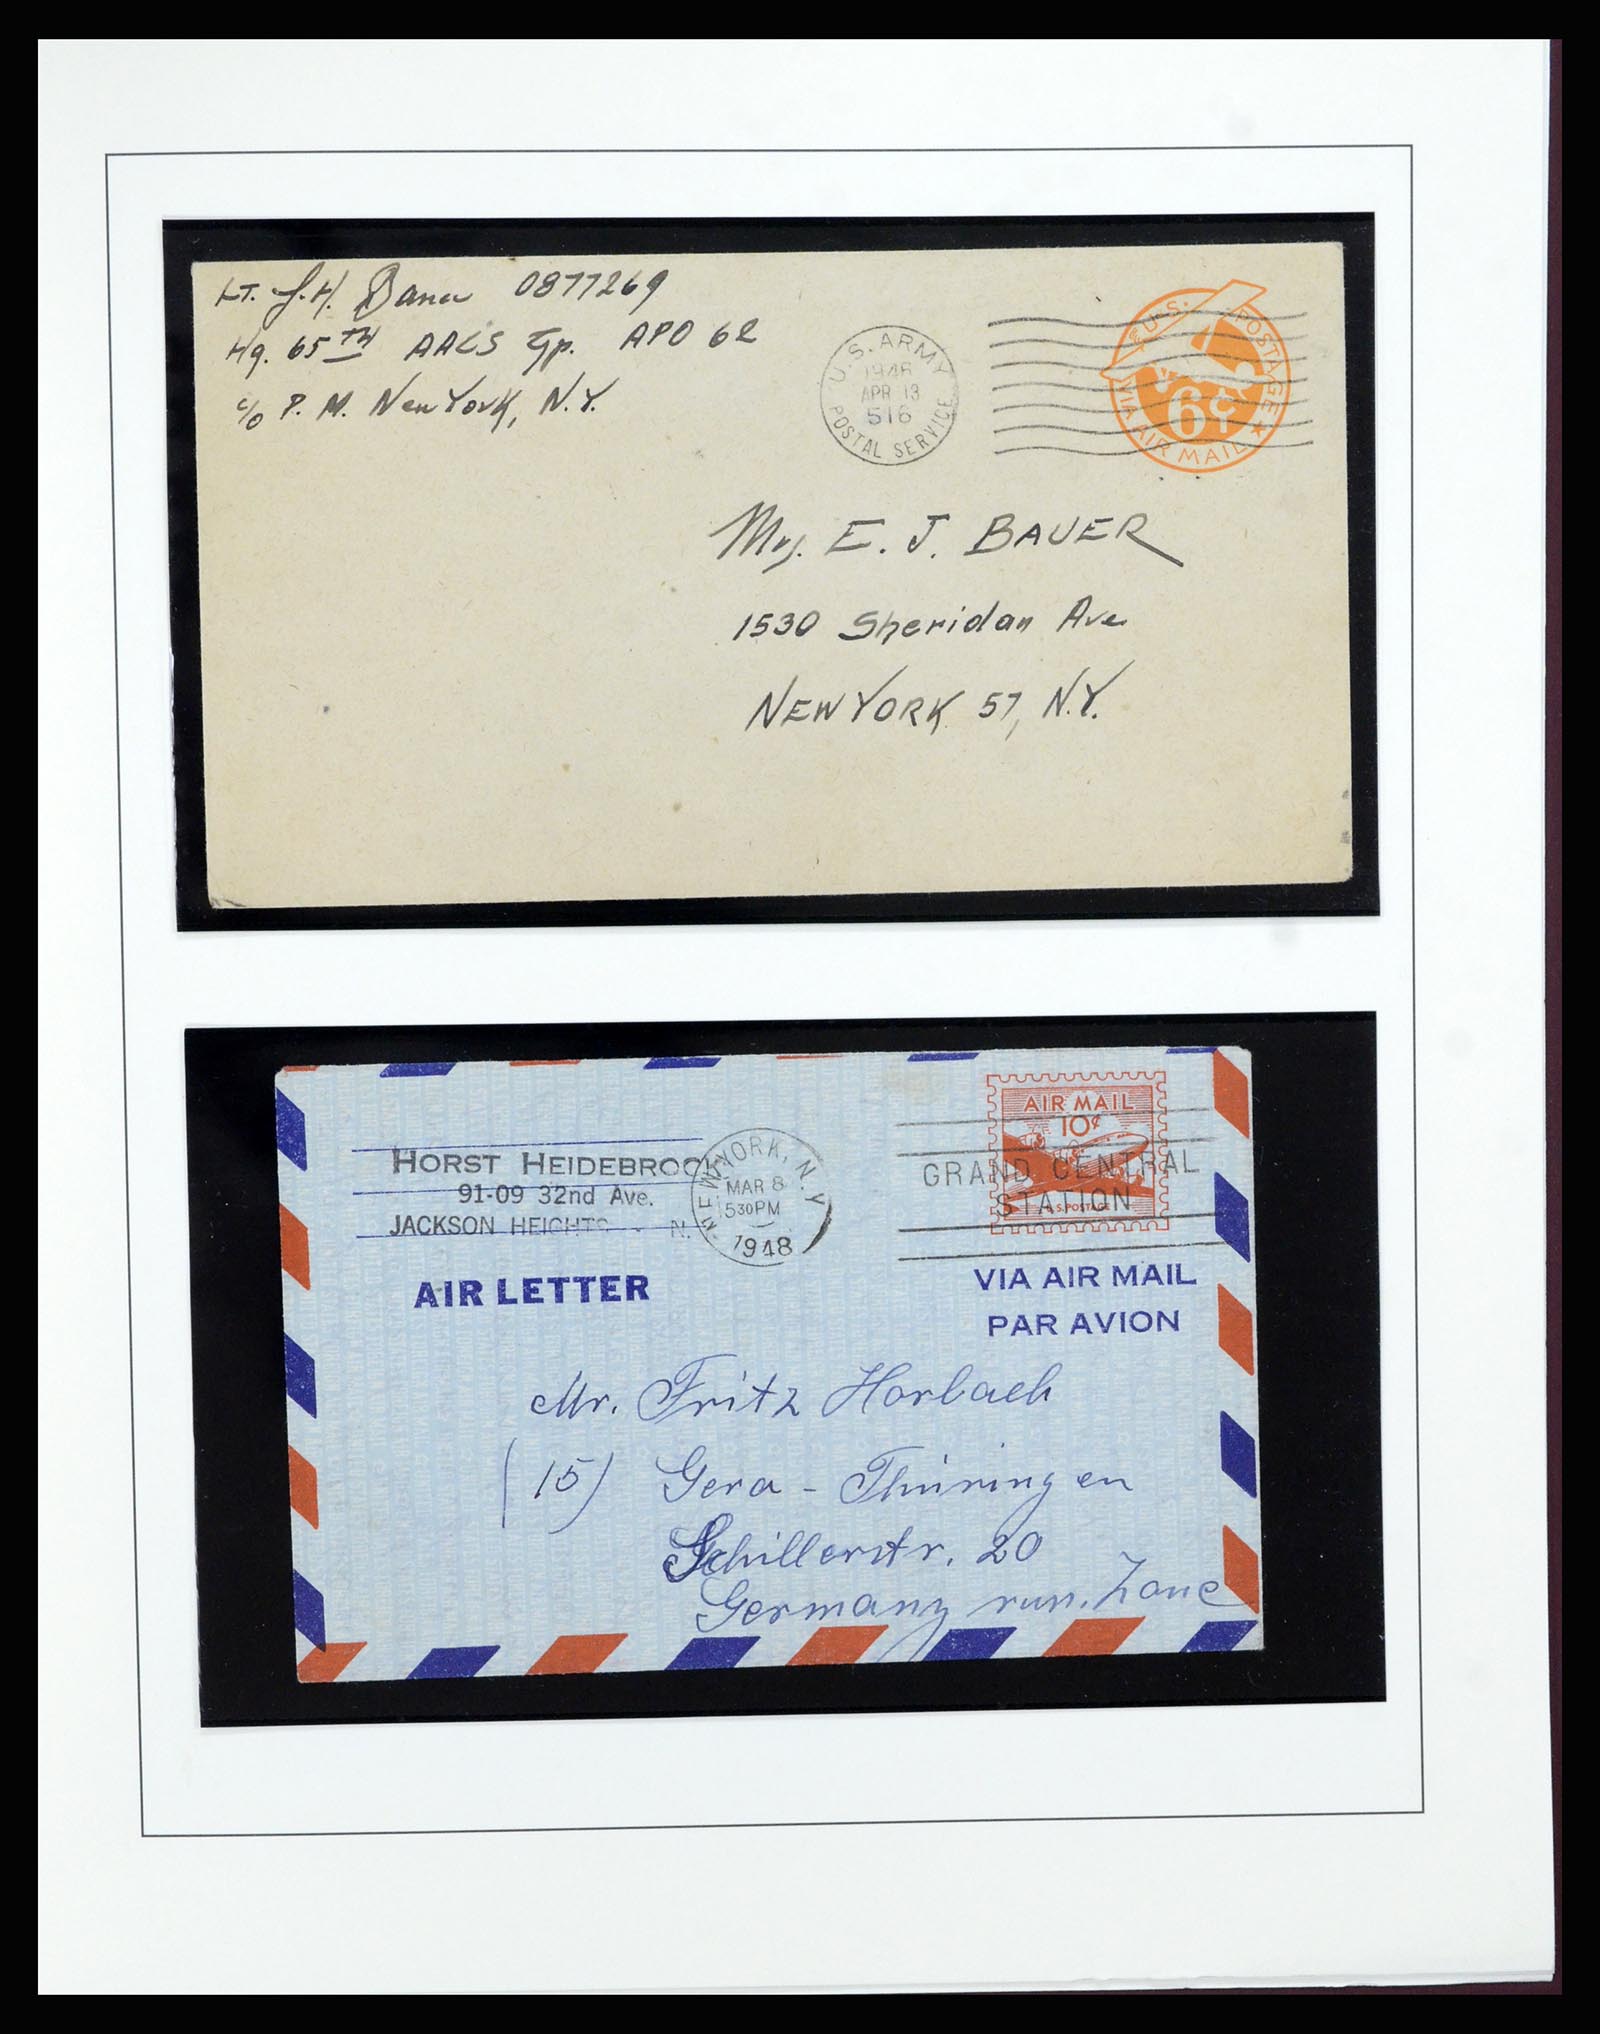 Lt. J. H. Bauer 0877269
Hq. 65TH AACS Gp. APO 62
c/o P. M. New York, N.Y.
U.S. ARMY
1946
APR 13
516
POSTAL SERVICE
U.S. POSTAGE
6¢
VIA AIR MAIL
Mrs. E. J. BAUER
1530 Sheridan Ave
NEW YORK 57, N.Y.
HORST HEIDEBROCK
91-09 32nd Ave.
JACKSON HEIGHTS - N.
NEW YORK, N.Y.
MAR 8
530PM
1948
AIR MAIL
10¢
U.S. POSTAGE
GRAND CENTRAL
STATION
AIR LETTER
VIA AIR MAIL
PAR AVION
Mr. Fritz Horbach
(15) Gera - Thüringen
Schillerstr. 20
Germany russ. Zone